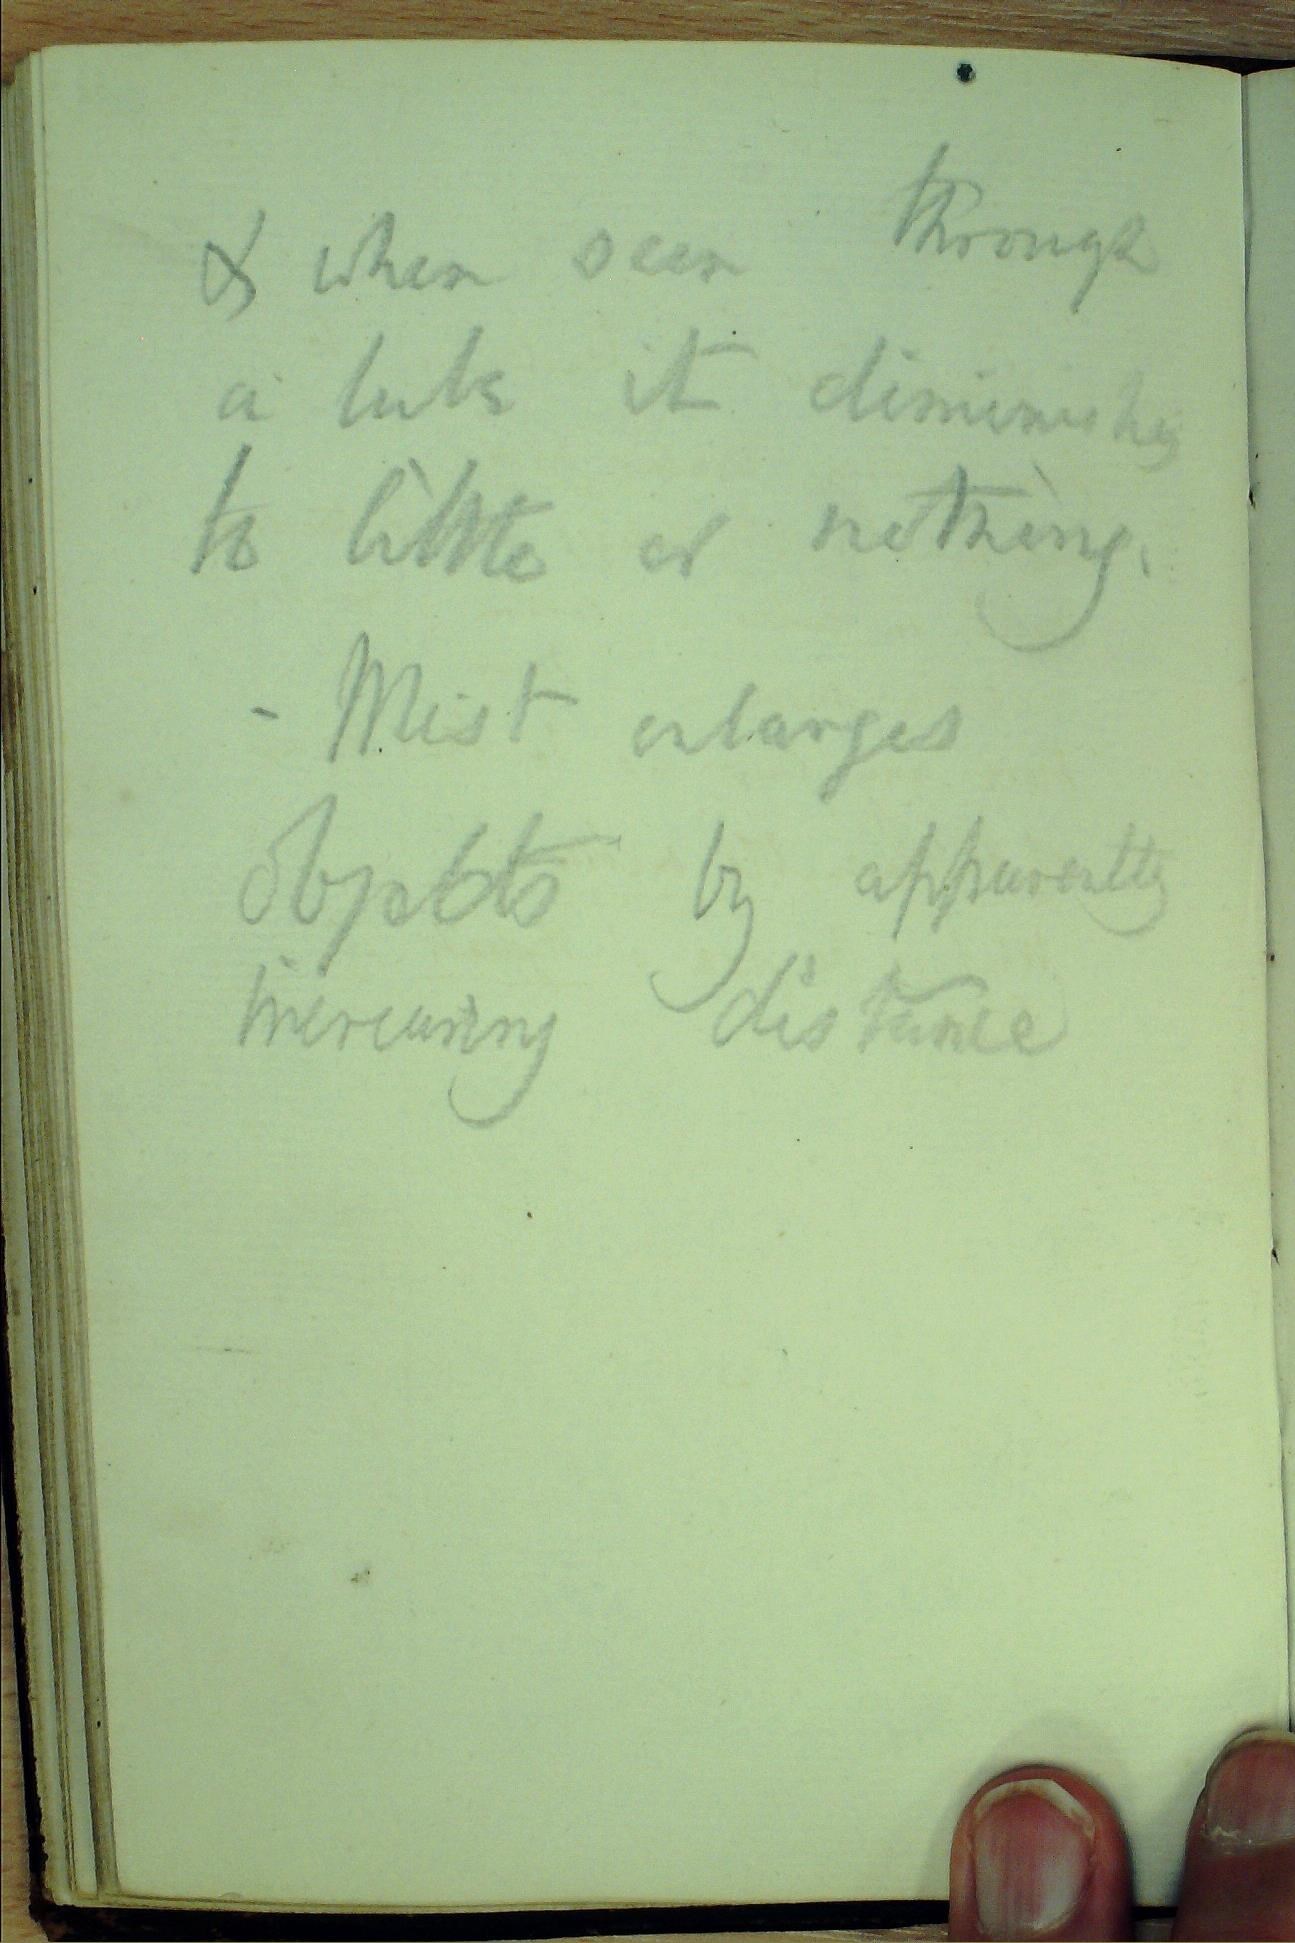 & when seen through
a tube it diminishes
to little or nothing.
- Mist enlarges
objects by apparently
increasing distance